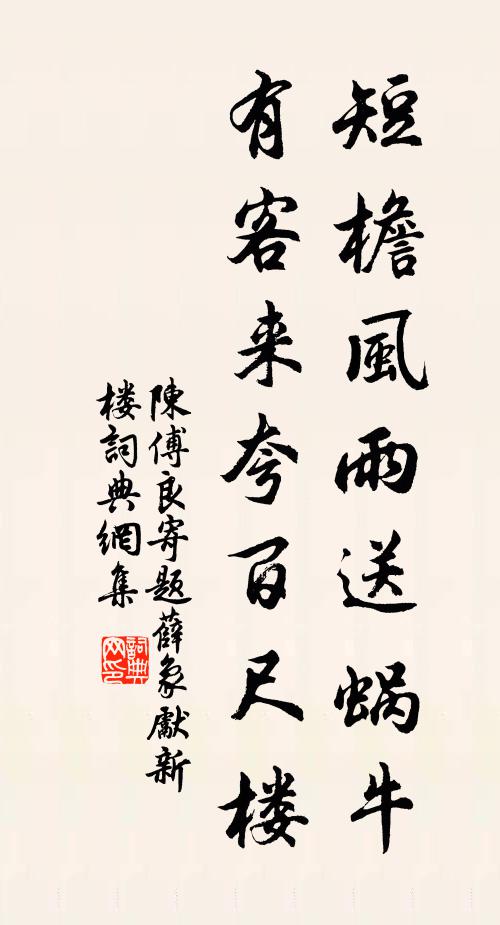 短檐風雨送蜗牛
有客来夸百尺楼
陳傅良寄題薛象獻新
楼詞典網集
詞典
网印